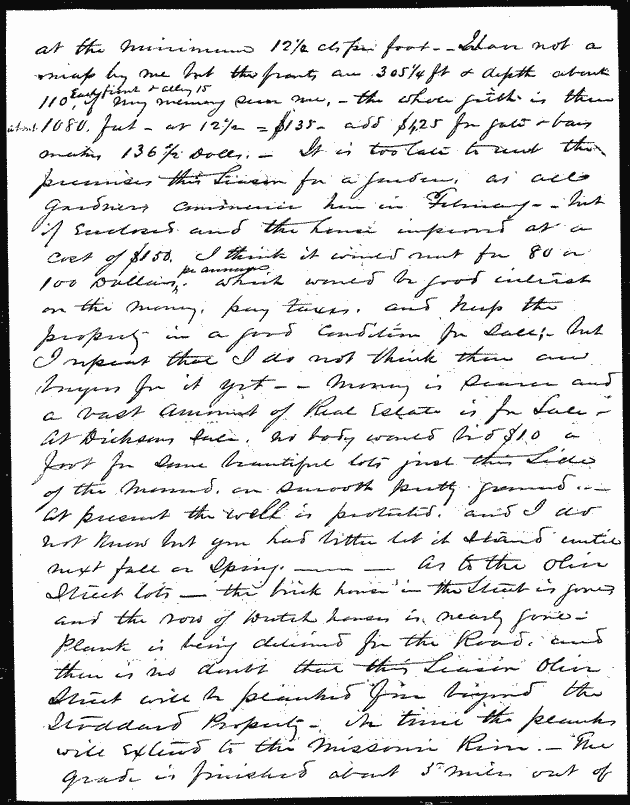 at the minimum 12½ cts per foot -- I have not a
map by me but the fronts are 305¼ ft & depth about
Each front & alley 15
110, if my memory serve me, - the whole girth is then
about 1080. feet - at 12½ = $135 - add $1,25 for gate & bars
makes 136½ Dolls. - It is too late to rent the
premises this Season for a garden, as all
Gardners commence here in February - - but
if Enclosed and the house improved at a
cost of $150. I think it would rent for 80 or
per annum
100 Dollars, which would be good interest
on the money, pay taxes, and keep the
property in a good Condition for Sale; - but
I repeat that I do not think there are
buyers for it yet - - Money is scarce and
a vast amount of Real Estate is for Sale -
At Dicksons Sale, no body would bid $10 a
foot for some beautiful lots just this Side
of the Mound, on smooth pretty ground. -
At present the well is protected, and I do
not know but you had better let it stand until
next fall or Spring. - - As to the Olive
Street lots - the brick house in the Street is gone
and the row of Dutch houses is nearly gone -
Plank is being delivered for the Road, and
there is no doubt that this Season Olive
Street will be planked far beyond the
Stoddard Property - In time the planks
will Extend to the Missouri River. - The
grade is finished about 5 miles out of